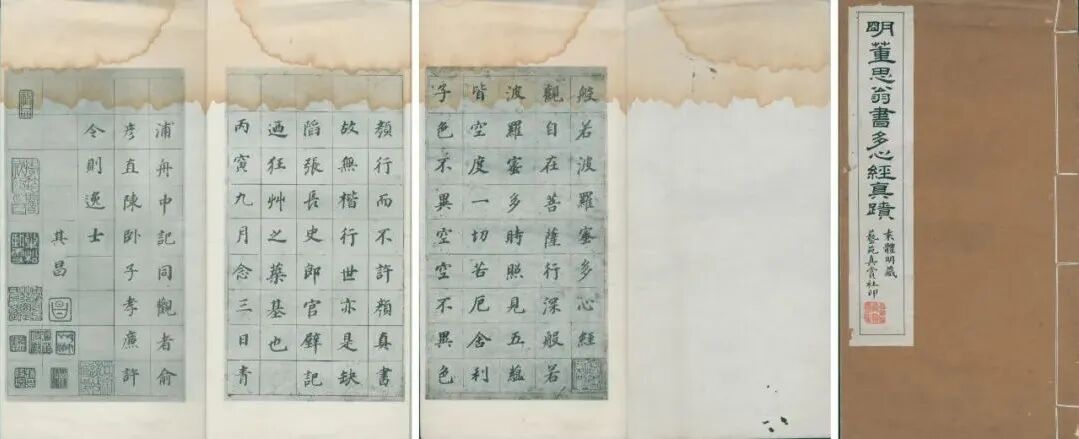 明董思翁書多心經真蹟
袁體明藏
藝苑真賞社印
般若波羅蜜多心經
觀自在菩薩行深般若
波羅蜜多時照見五蘊
皆空度一切苦厄舍利
子色不異空空不異色
顏行而不許顏真書
故無楷行世亦是缺
陷張長史郎官壁記
迺狂艸之築基也
丙寅九月念三日青
浦舟中記同觀者俞
彥直陳臥子孝廉許
令則逸士
其昌